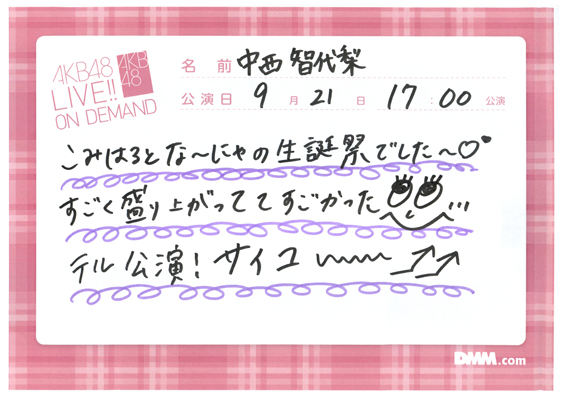 AKB48
LIVE!!
ON DEMAND
AKB
48
名前 中西智代梨
公演日 9月21日 17:00公演
こみはるとな〜にゃの生誕祭でした〜♡♥
すごく盛り上がっててすごかった...
テル公演！サイコ〜〜〜
DMM.com